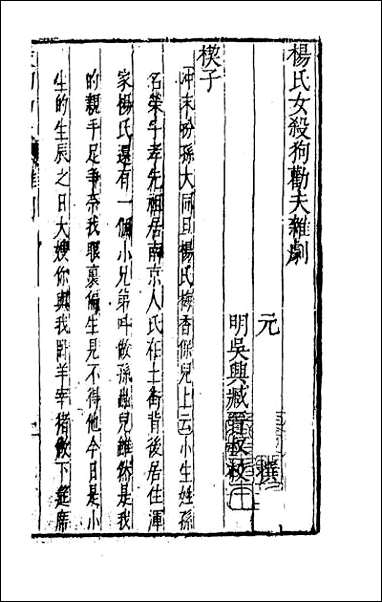 楊氏女殺狗勸夫雜劇
元 撰
明吳興臧晉叔校
楔子
冲末扮孫大同旦楊氏梅香保兒上云小生姓孫
名榮字孝先祖居南京人氏在土街背後居住渾
家楊氏還有一個小兄弟叫做孫蟲兒雖然是我
的親手足爭奈我眼裏偏生見不得他今日是小
生的生辰之日大嫂你與我臥羊宰猪做下筵席